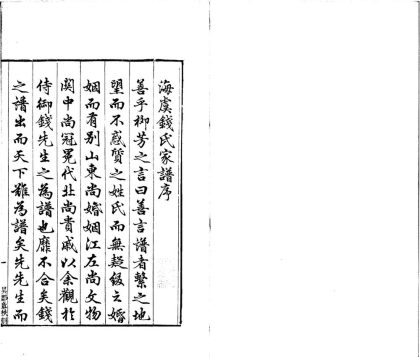 海虞錢氏家譜序
善乎柳芳之言曰善言譜者繫之地
望而不惑質之姓氏而無疑綴之婚
姻而有別山東尚婚姻江左尚文物
關中尚冠冕代北尚貴戚以余觀於
侍御錢先生之為譜也靡不合矣錢
之譜出而天下難為譜矣先先生而
一